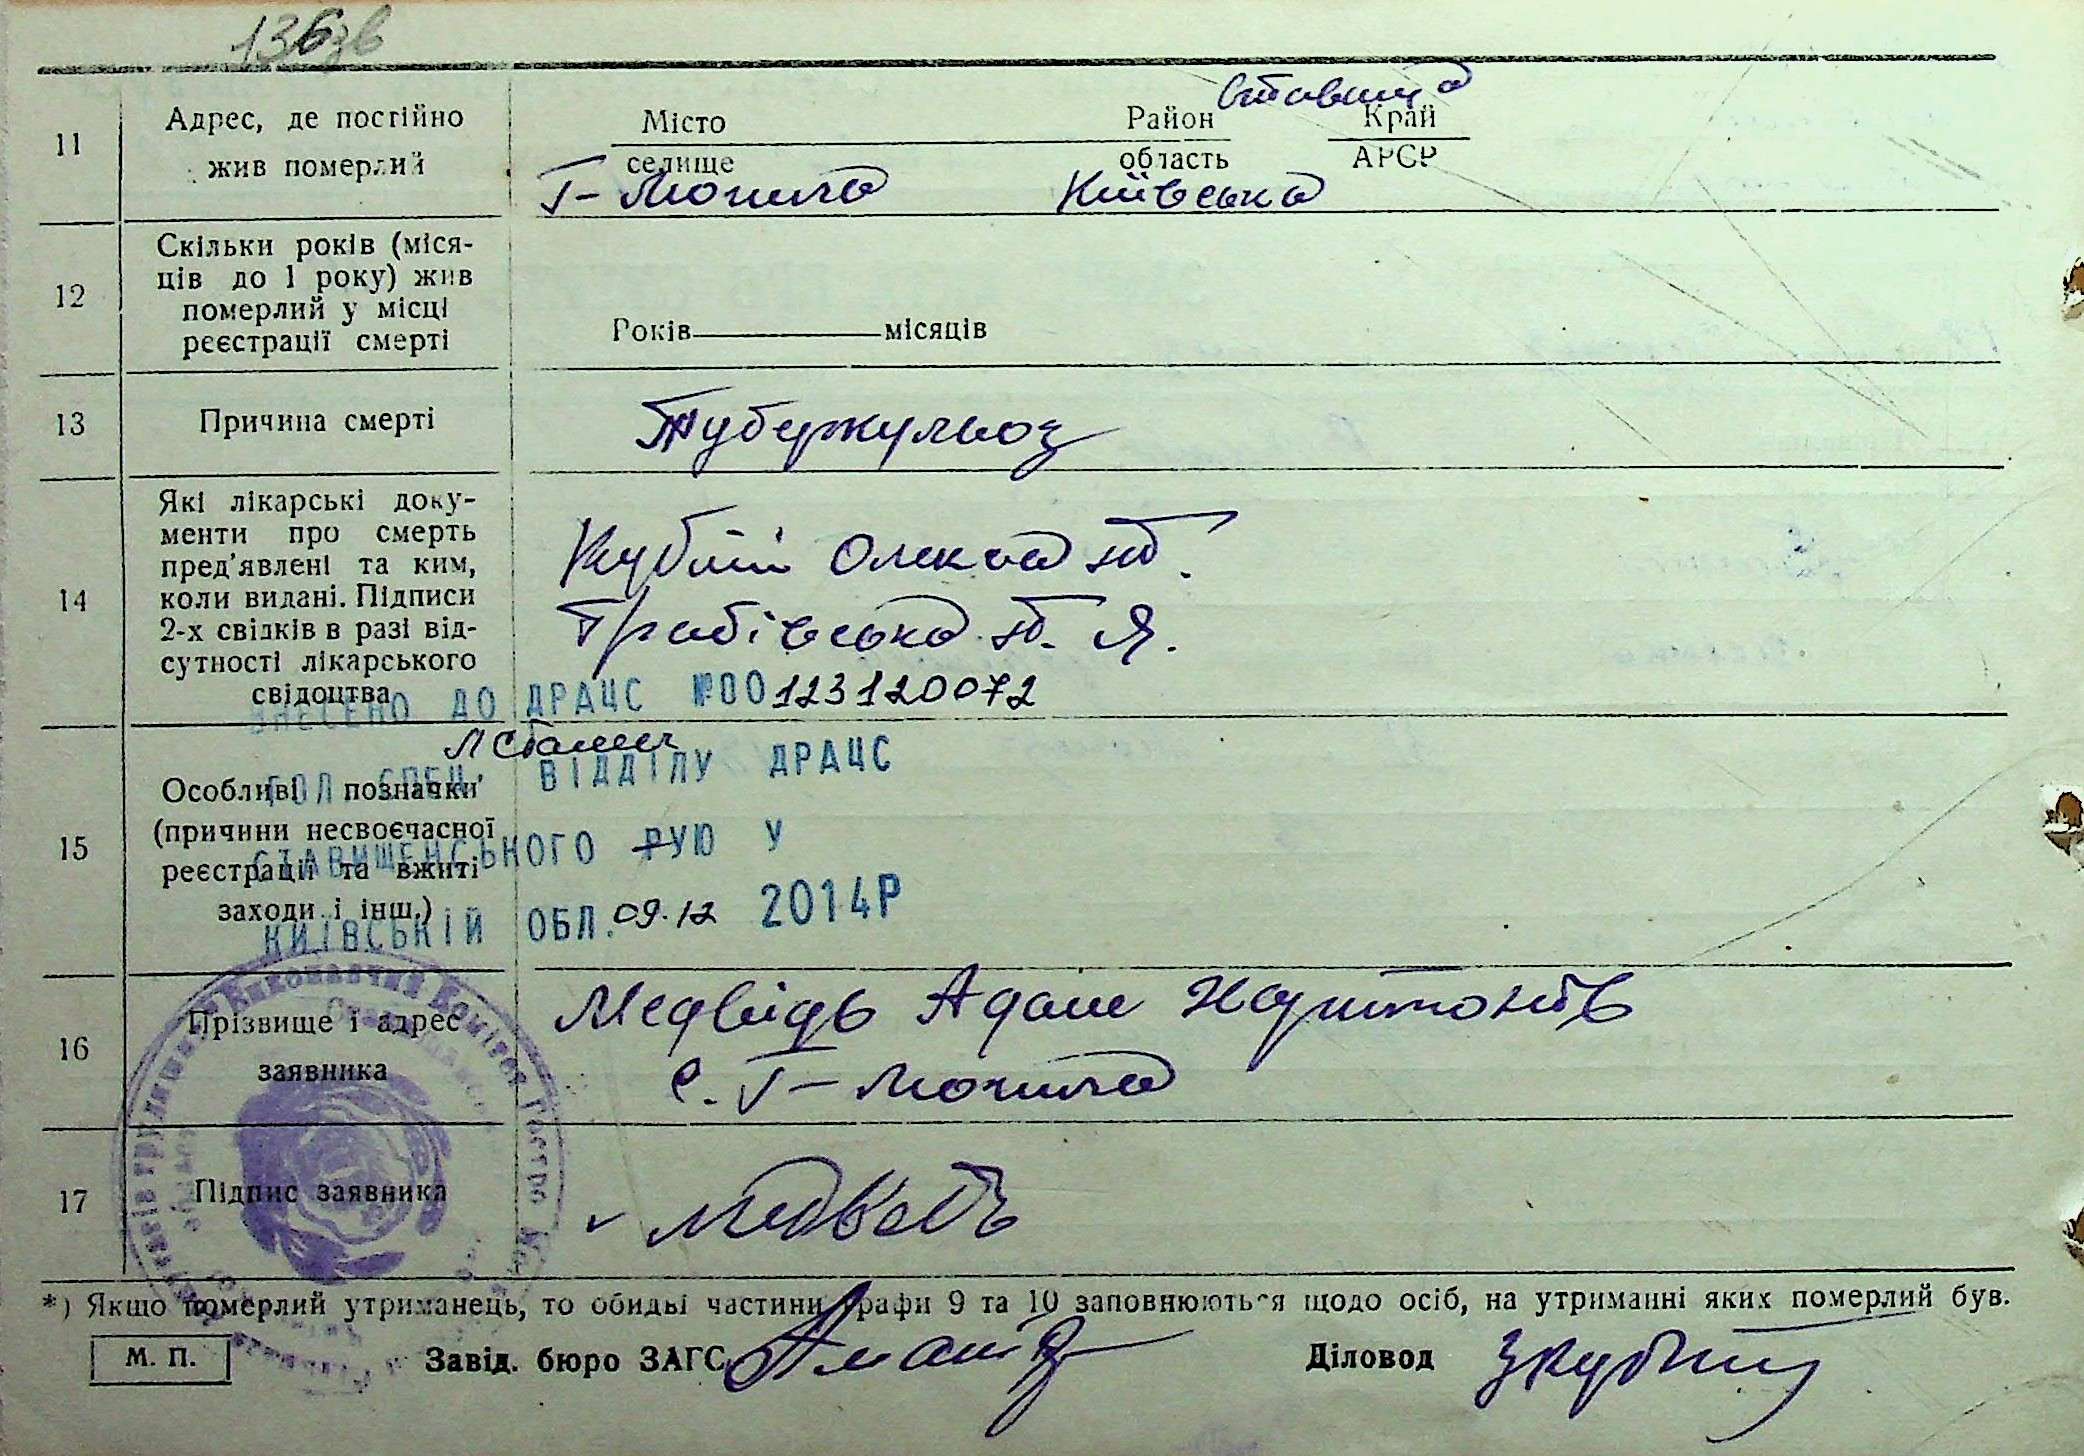 136зв
11
Адрес, де постійно
жив померлий
Ставища
Місто
Район
Край
селище
область
АРСР
Г-Могила
Київська
12
Скільки років (міся-
ців до 1 року) жив
померлий у місці
реєстрації смерті
Років
місяців
13
Причина смерті
Туберкульоз
14
Які лікарські доку-
менти про смерть
пред'явлені та ким,
коли видані. Підписи
2-х свідків в разі від-
сутності лікарського
свідоцтва
Кубій Олекса
Грабівська Т. Я.
ВНЕСЕНО ДО ДРАЦС №00123120072
ГОЛ. СПЕЦ. ВІДДІЛУ ДРАЦС
СТАВИЩЕНСЬКОГО РУЮ У
КИЇВСЬКІЙ ОБЛ. 09.12 2014Р
15
Особливі позначки
(причини несвоєчасної
реєстрації та вжиті
заходи і інш.)
16
Прізвище і адрес
заявника
Медвідь Адам
с. Г-Могила
17
Підпис заявника
Медведь
Виконавчий Комітет
*) Якщо померлий утриманець, то обидві частини графи 9 та 10 заповнюються щодо осіб, на утриманні яких померлий був.
М. П.
Завід. бюро ЗАГС
Діловод